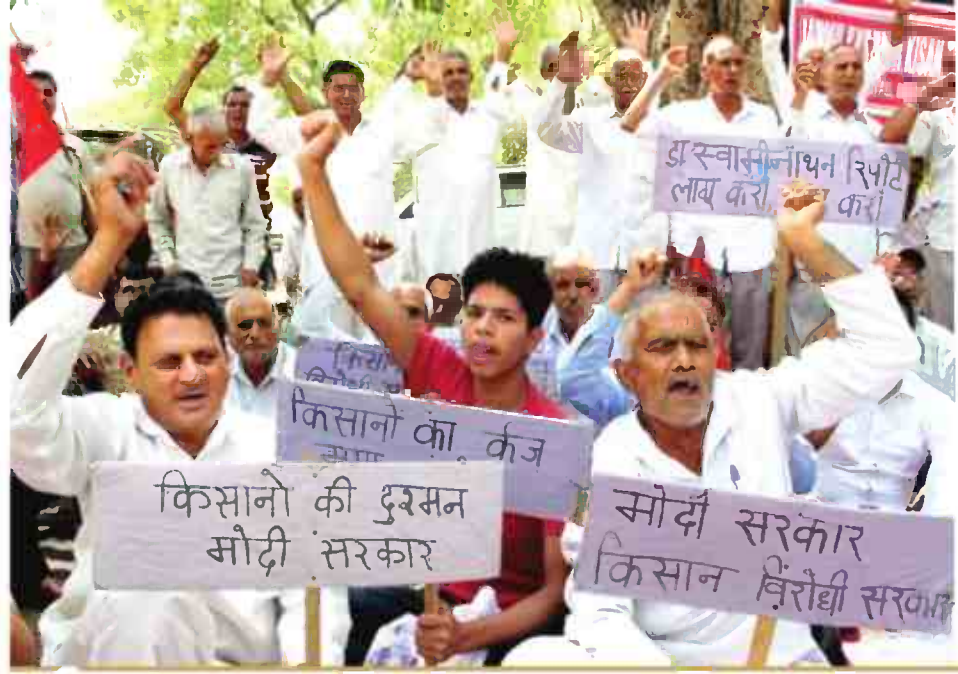 डा स्वामीनाथन रिपोर्ट
लागू करो, करो
किसा
विरोधी
किसानों का कर्ज
किसानो की दुश्मन
मोदी सरकार
मोदी सरकार
किसान विरोधी सरकार